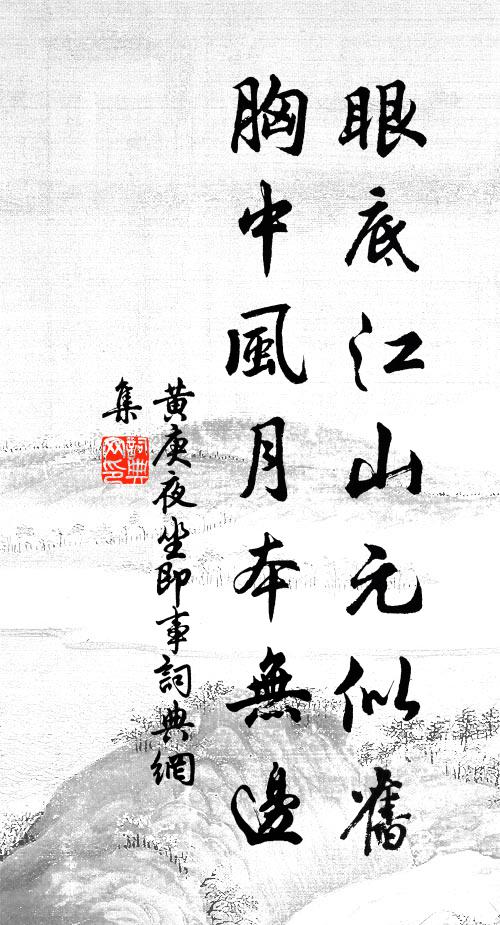 眼底江山元似舊
胸中風月本無邊
黃庚夜坐即事詞典網
集
詞典网印